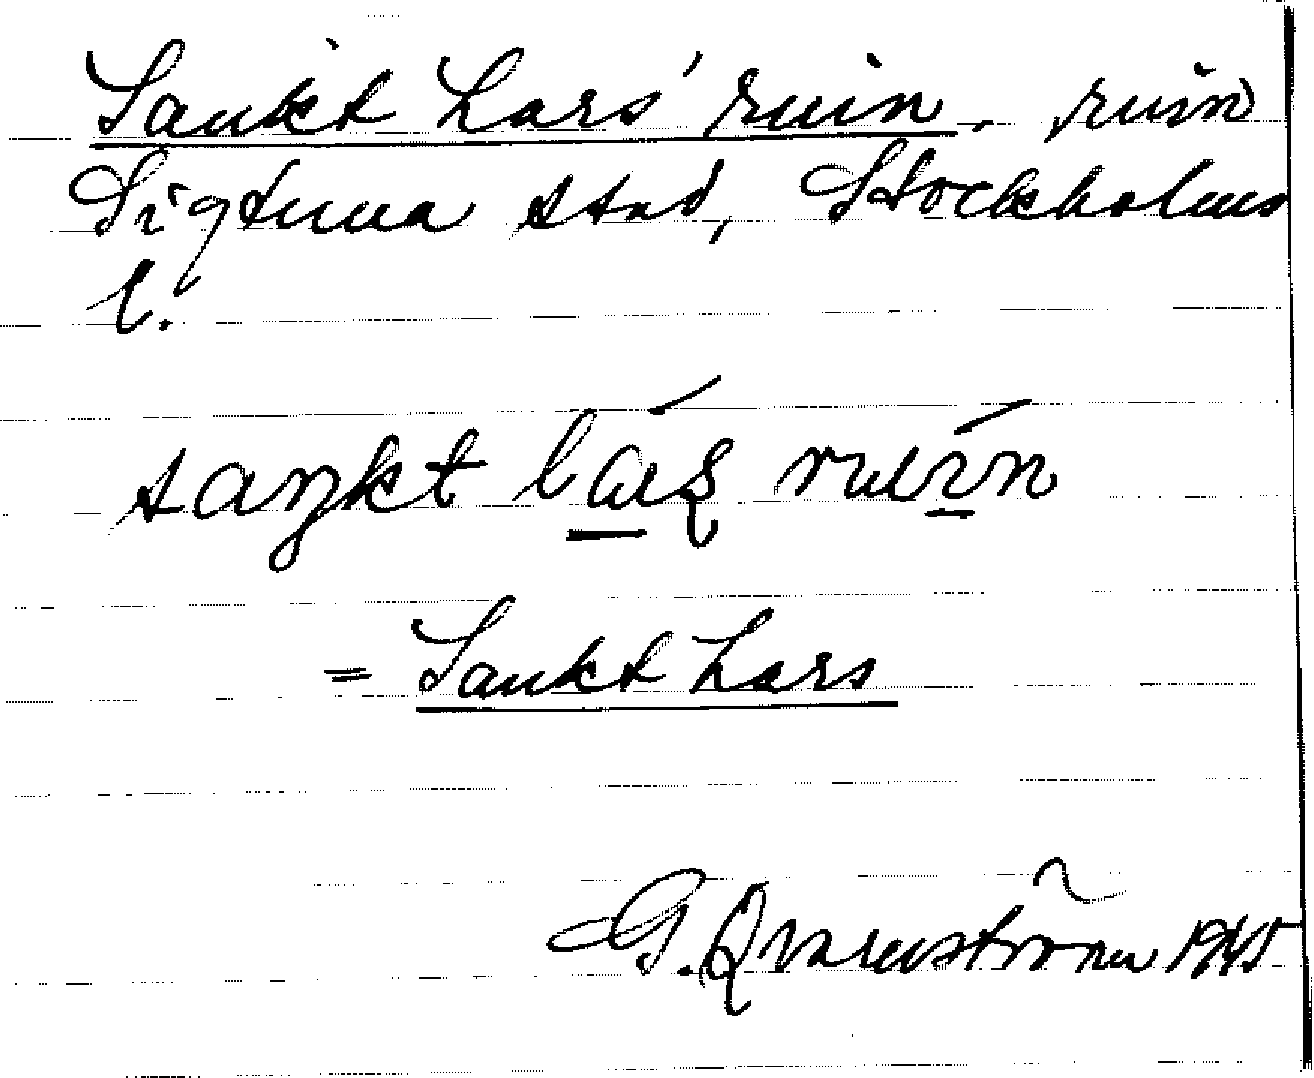 Sankt Lars' ruin, ruin
Sigtuna stad, Stockholms
l.
saŋkt lɑ́ꞩ ruín
= Sankt Lars
G. Qvarnström 1945